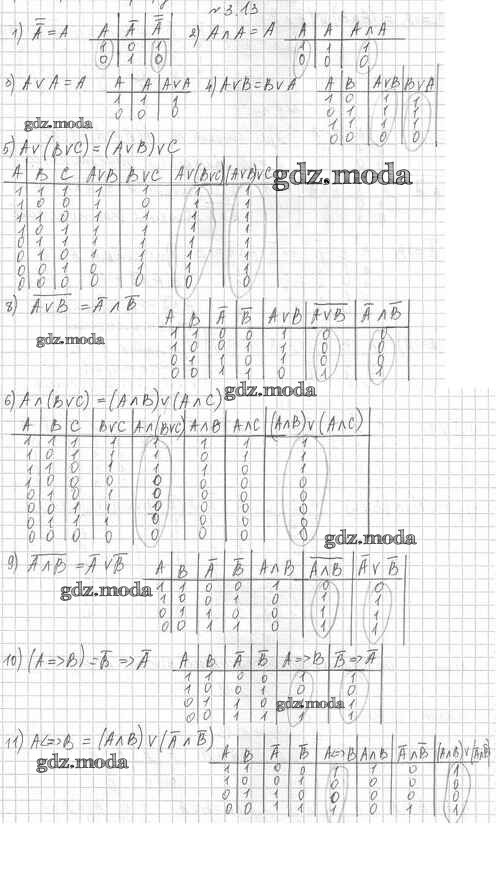 №3.13
1) A̿ = A
A A̅ A̿
1 0 1
0 1 0
2) A∧A = A
A A A∧A
1 1 1
0 1 0
3) A∨A = A
A A A∨A
1 1 1
0 0 0
4) A∨B = B∨A
A B A∨B B∨A
1 0 1 1
0 1 1 1
1 1 1 1
0 0 0 0
gdz.moda
5) A∨(B∨C) = (A∨B)∨C
A B C A∨B B∨C A∨(B∨C) (A∨B)∨C
gdz.moda
1 1 1 1 1 1 1
1 0 0 1 0 1 1
1 1 0 1 1 1 1
1 0 1 1 1 1 1
0 1 1 1 1 1 1
0 1 0 1 1 1 1
0 0 1 0 1 1 1
0 0 0 0 0 0 0
8) A̅∨̅B̅ = A̅ ∧ B̅
A B A̅ B̅ A∨B A̅∨̅B̅ A̅ ∧ B̅
1 1 0 0 1 0 0
1 0 0 1 1 0 0
0 1 1 0 1 0 0
0 0 1 1 0 1 1
gdz.moda
gdz.moda
6) A∧(B∨C) = (A∧B)∨(A∧C)
A B C B∨C A∧(B∨C) A∧B A∧C (A∧B)∨(A∧C)
1 1 1 1 1 1 1 1
1 0 1 1 1 0 1 1
1 1 0 1 1 1 0 1
1 0 0 0 0 0 0 0
0 1 0 1 0 0 0 0
0 0 1 1 0 0 0 0
0 1 1 1 0 0 0 0
0 0 0 0 0 0 0 0
gdz.moda
9) A̅∧̅B̅ = A̅ ∨ B̅
A B A̅ B̅ A∧B A̅∧̅B̅ A̅ ∨ B̅
1 1 0 0 1 0 0
1 0 0 1 0 1 1
0 1 1 0 0 1 1
0 0 1 1 0 1 1
gdz.moda
10) (A=>B) = B̅ => A̅
A B A̅ B̅ A=>B B̅=>A̅
1 1 0 0 1 1
1 0 0 1 0 0
0 1 1 0 1 1
0 0 1 1 1 1
gdz.moda
11) A<=>B = (A∧B)∨(A̅∧B̅)
A B A̅ B̅ A<=>B A∧B A̅∧B̅ (A∧B)∨(A̅∧B̅)
1 1 0 0 1 1 0 1
1 0 0 1 0 0 0 0
0 1 1 0 0 0 0 0
0 0 1 1 1 0 1 1
gdz.moda